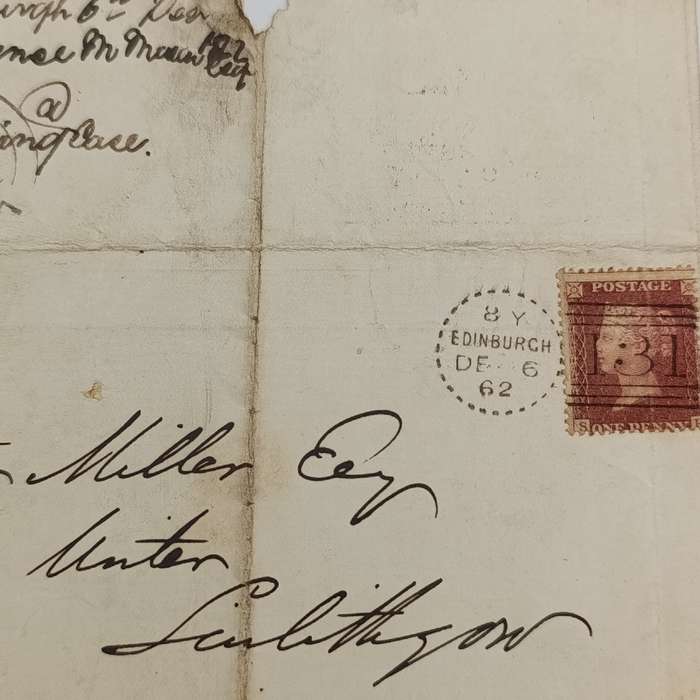 burgh 6th Decr
ence M 1862
@
ing Case.
8 Y
EDINBURGH
DE 6
62
POSTAGE
131
S ONE PENNY
Miller Esq
Writer
Linlithgow